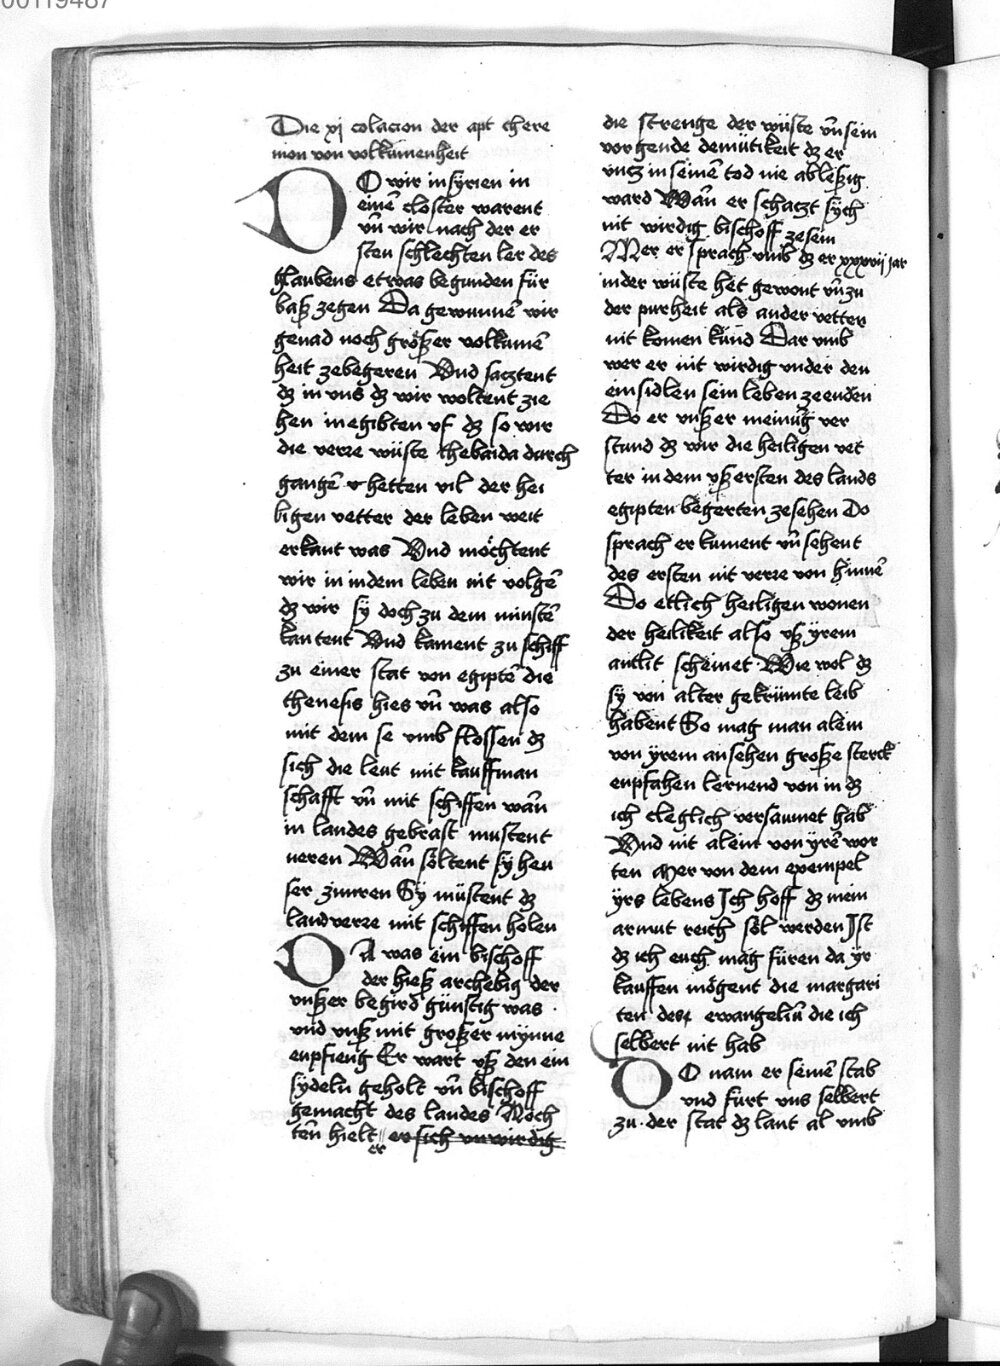 00119487
Die xj colacion der apt chere
mon von volkumenheit
DO wir in syrien in
einē closter warent
vn̄ wir nach der er
sten schlechten ler des
glaubens etwas begunden für
baß zegen Da gewunnē wir
genad noch größer volkumē
heit zebegeren Vnd sacztent
dz in vns dz wir woltent zie
hen in egibten vf dz so wir
die verre wüste thebaida durch
gangē hetten vil der hei
ligen vetter der leben weit
erkant was Vnd möchtent
wir in in dem leben nit volgē
dz wir sy doch zu dem minstē
kantent Vnd kament zu schiff
zu einer stat von egiptē die
thenesis hies vn̄ was also
mit dem se vmb flossen dz
sich die leut mit kauffman
schafft vn̄ mit schiffen wan̄
in landes gebrast mustent
neren Wan̄ söltent sy heu
ser zimren Sy müstent dz
land verre mit schiffen holen
DA was ein bischoff
der hieß archebig der
vnßer begird günstig was
vnd vnß mit großer mynne
enpfieng Er wart vß den ein
sydeln geholt vn̄ bischoff
gemacht des landes Noch
ten̄ hielt er sich vnwirdig
er
die strenge der wüste vn̄ sein
vor gende demütikeit dz er
vncz in seinē tod nie ableßig
ward Wan̄ er schaczt sych
nit wirdig bischoff ze sein
Mer er sprach vmb dz er xxxvij jar
in der wüste het gewont vn̄ zu
der purheit als ander vetter
nit komen kund Dar vmb
wer er nit wirdig vnder den
einsidlen sein leben zeenden
Do er vnßer meinūg ver
stund dz wir die heiligen vet
ter in dem vßersten des lands
egipten begerten zesehen Do
sprach er kument vn̄ sehent
des ersten nit verre von hinnē
Do etlich heiligen wonen
der heilikeit also vß yrem
antlit scheinet Wie wol dz
sy von alter gekrümte leib
habent So mag man alein
von yrem ansehen große sterck
enpfahen lernend von in dz
ich cleglich versaumet hab
Vnd nit alein von yrē wor
ten Mer von dem exempel
yrs lebens Ich hoff dz mein
armut reich söl werden Ist
dz ich euch mag füren da yr
kauffen mögent die margari
ten des ewangeliū die ich
selbert nit hab
DO nam er seinē stab
vnd fürt vns selbert
zu der stat dz lant al vmb